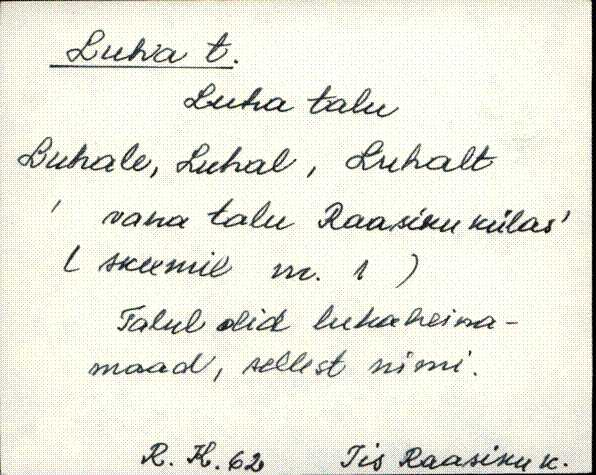 Luha t.
Luha talu
Luhale, Luhal, Luhalt
' vana talu Raasiku külas'
( skeemil nr. 1 )
Talul olid luhaheina-
maad, sellest nimi.
R. K. 62 Jis Raasiku k.